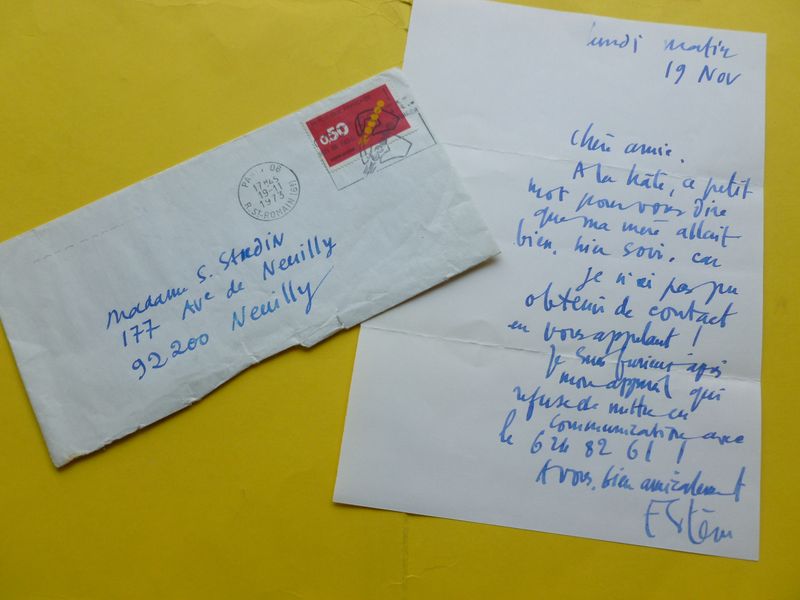 lundi matin
19 Nov
Chère amie.
A la hâte, ce petit
mot pour vous dire
que ma mère allait
bien, hier soir, car
je n'ai pas pu
obtenir de contact
en vous appelant !
Je suis furieux après
mon appareil qui
refuse de mettre en
communication avec
le 624 82 61 !
A vous, bien amicalement
0.50
PARIS 08
17H45
19-11
1973
R. ST-ROMAIN (6E)
Madame S. 
177 Ave de Neuilly
92200 Neuilly